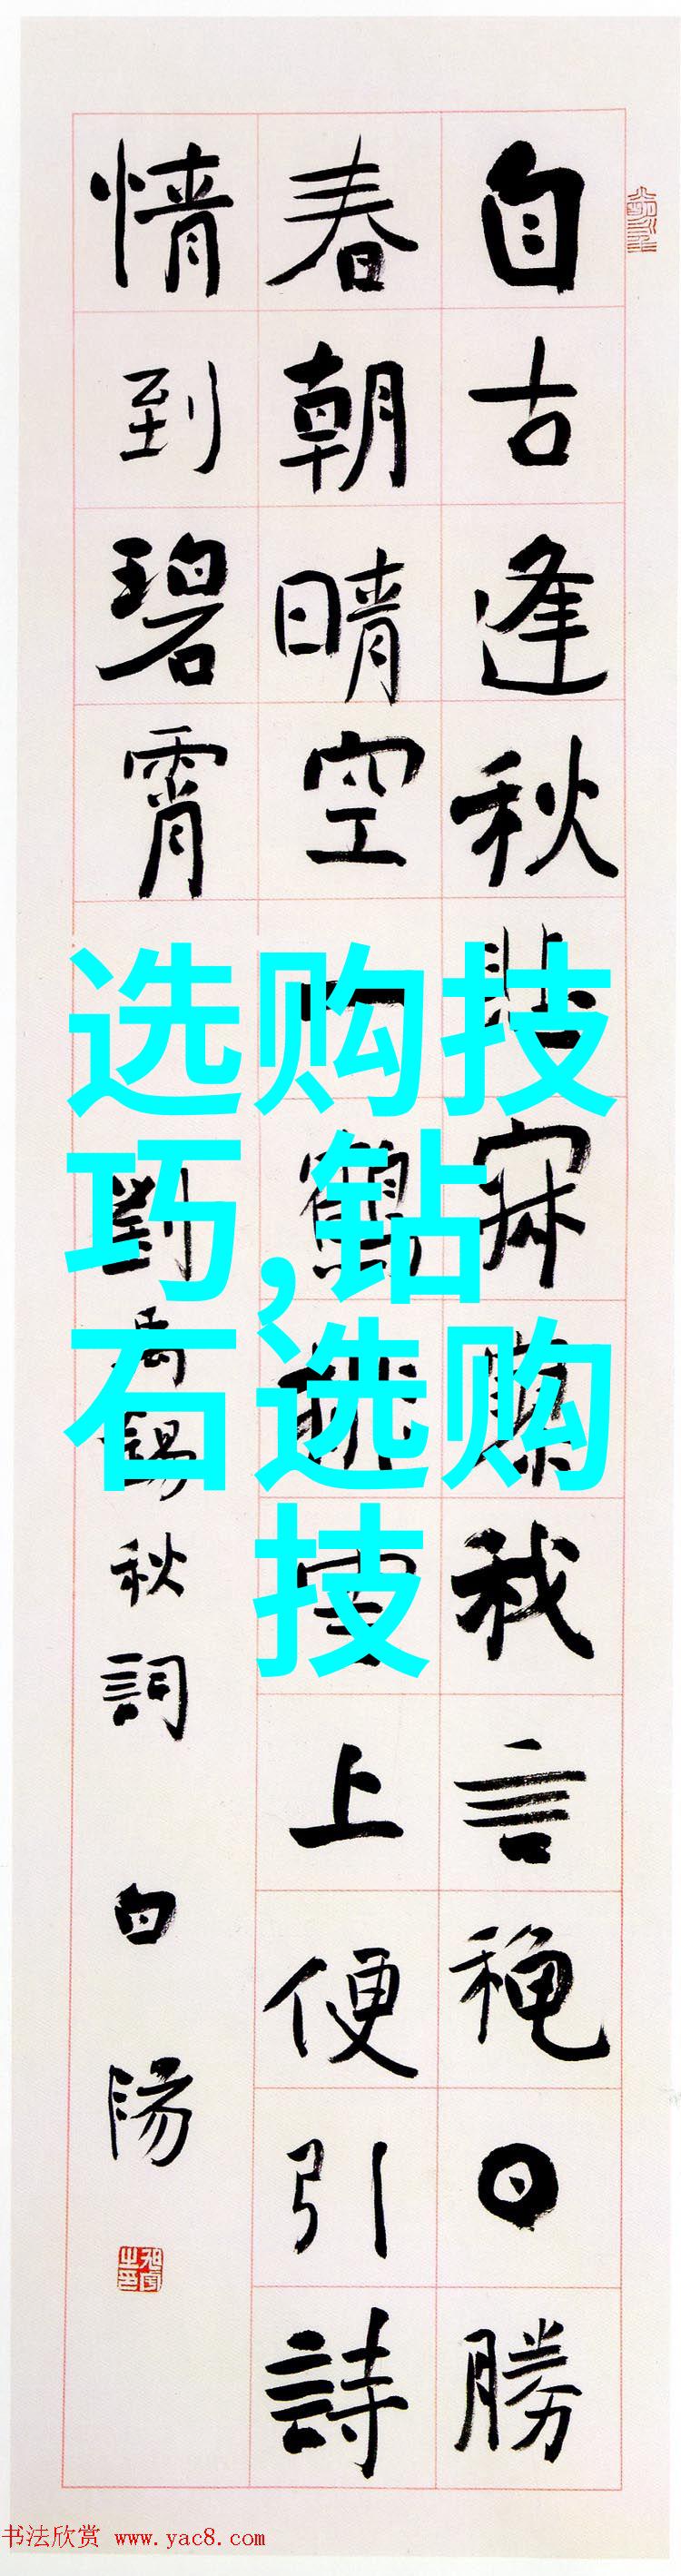 自古逢秋悲寂寥我言穐日勝
春朝晴空一鶴排雲上便引詩
情到碧霄 劉禹錫秋詞 白陽
选购技
巧,钻
石选购
技
书法欣赏 www.yac8.com